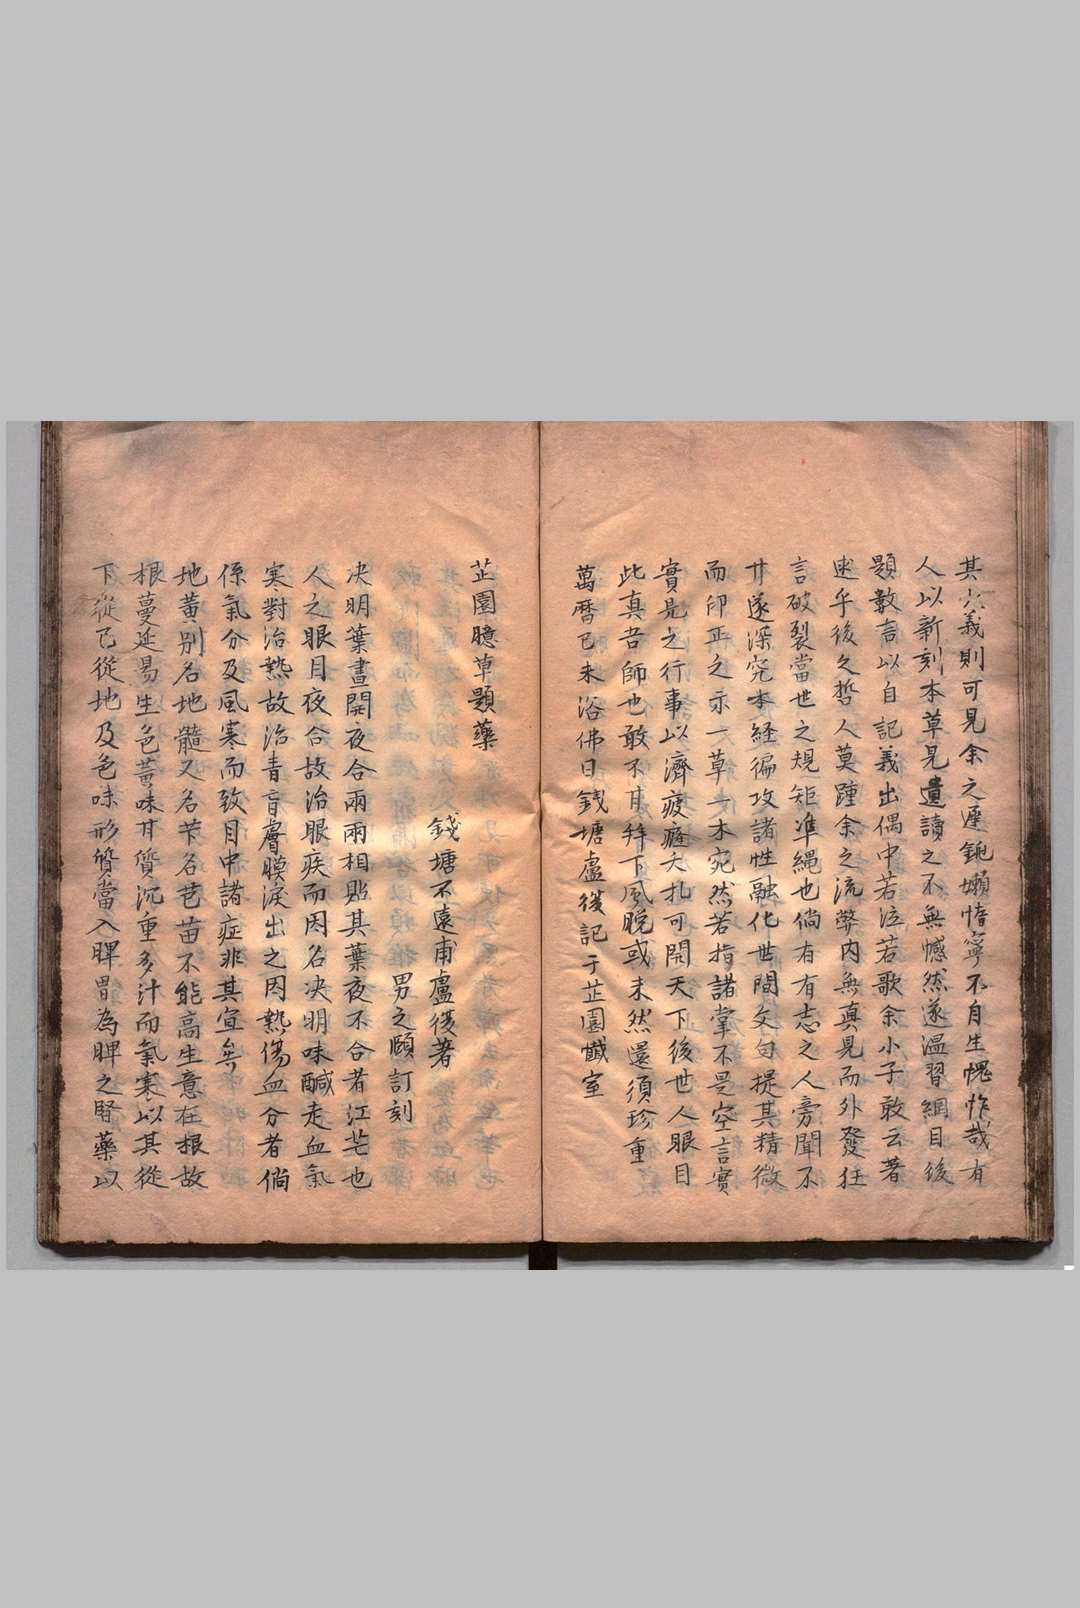 其六義則可見余之遲鈍嬾惰寧不自生愧怍哉有
人以新刻本草見遺讀之不無憾然遂溫習綱目後
題數言以自記義出偶中若泣若歌余小子敢云著
述乎後之哲人莫踵余之流弊內無真見而外發狂
言破裂當世之規矩準繩也倘有有志之人旁聞不
甘遂深究本經徧攻諸性融化世間文句提其精微
而印正之示一草一木宛然若指諸掌不是空言實
實見之行事以濟疲癃夭扎可開天下後世人眼目
此真吾師也敢不甘拜下風晚或未然還須珍重
萬曆己未浴佛日錢塘盧復記于芷園懺室
芷園臆草題藥
錢塘不遠甫盧復著
男之頤訂刻
决明葉晝開夜合兩兩相貼其葉夜不合者江芒也
人之眼目夜合故治眼疾而因名决明味鹹走血氣
寒對治熱故治青盲膚膜淚出之因熱傷血分者倘
係氣分及風寒而致目中諸症非其宜矣
地黃別名地髓又名芐名芑苗不能高生意在根故
根蔓延易生色黃味甘質沉重多汁而氣寒以其從
下從己從地及色味形質當入脾胃為脾之腎藥以